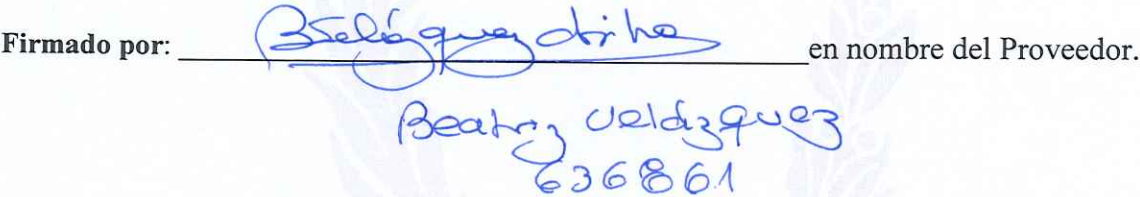 Firmado por: BVelázquez en nombre del Proveedor.
Beatriz Velázquez
636861